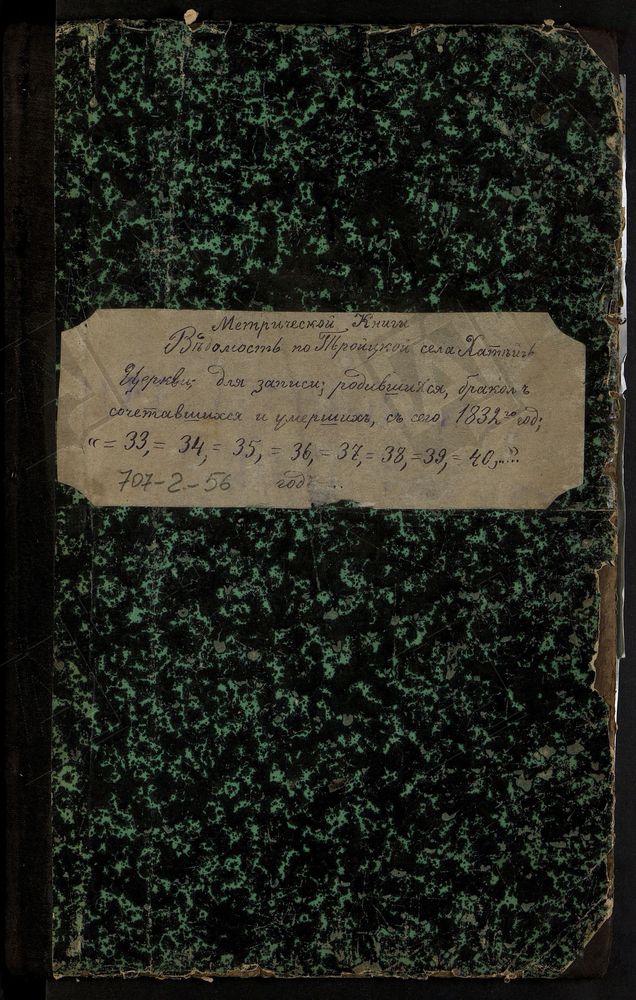 Метрической Книги
Вѣдомость по Тройцкой села Хатыгъ
Церкви; для записи; родившихся, бракомъ
сочетавшихся и умершихъ, съ сего, 1832го год;
"= 33,= 34,= 35,= 36,= 37,= 38,=39,= 40,..?
707-2-56 год ...